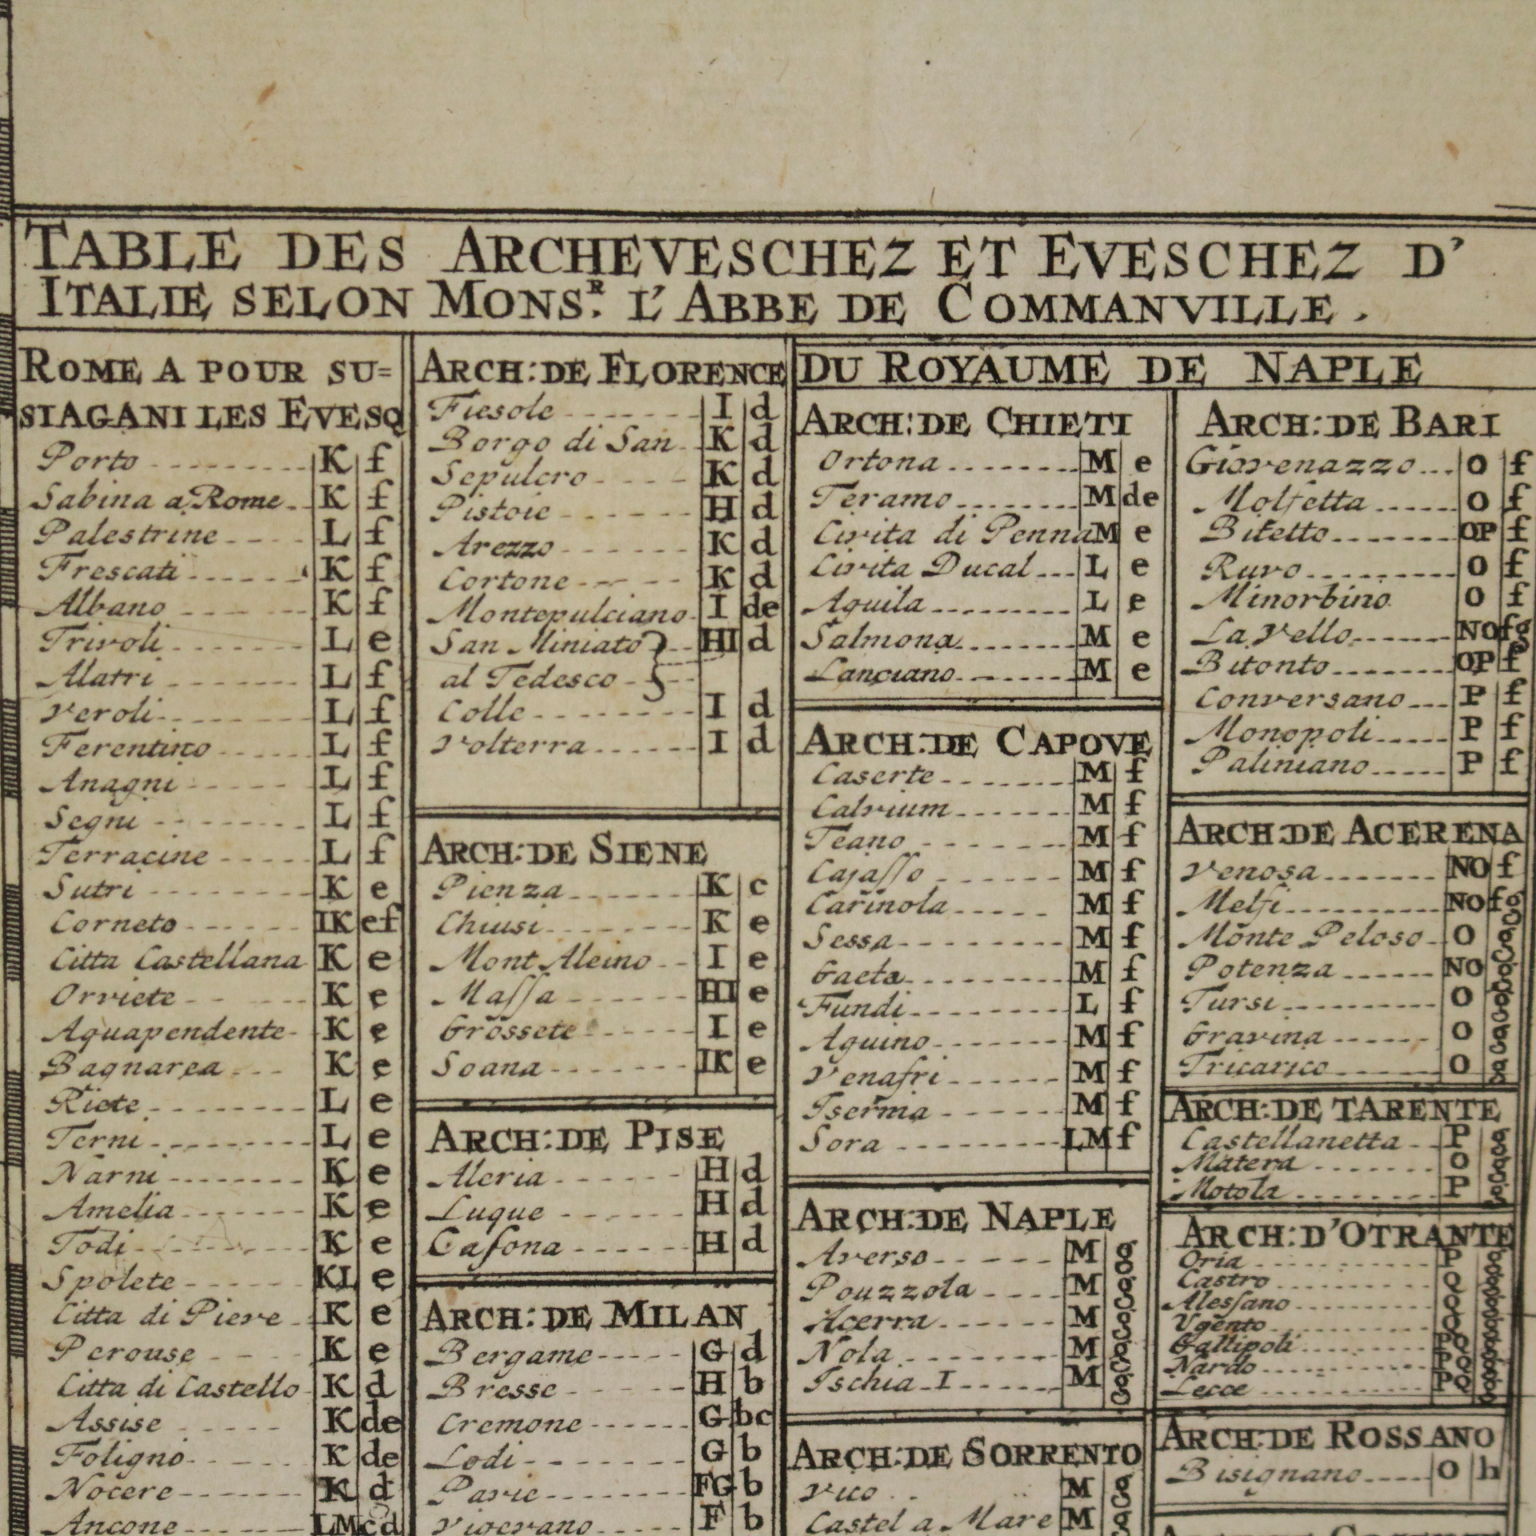 TABLE DES ARCHEVESCHEZ ET EVESCHEZ D'
ITALIE SELON MONS.R L'ABBE DE COMMANVILLE.
ROME A POUR SU=
SIAGANI LES EVESQ
Porto K f
Sabina a Rome K f
Palestrine L f
Frescati K f
Albano K f
Trivoli L e
Alatri L f
Veroli L f
Ferentino L f
Anagni L f
Segni L f
Terracine L f
Sutri K e
Corneto IK ef
Citta Castellana K e
Orviete K e
Aquapendente K e
Bagnarea K e
Riete L e
Terni L e
Narni K e
Amelia K e
Todi K e
Spolete KL e
Citta di Pieve K e
Perouse K e
Citta di Castello K d
Assise K de
Foligno K de
Nocere K d
Ancone LM cd
ARCH: DE FLORENCE
Fiesole I d
Borgo di San K d
Sepulcro K d
Pistoie H d
Arezzo K d
Cortone K d
Montepulciano I de
San Miniato HI d
al Tedesco
Colle I d
Volterra I d
ARCH: DE SIENE
Pienza K c
Chiusi K e
Mont Alcino I e
Massa HI e
Grossete I e
Soana IK e
ARCH: DE PISE
Aleria H d
Luque H d
Casona H d
ARCH: DE MILAN
Bergame G d
Bresse H b
Cremone G bc
Lodi G b
Pavie FG b
Vigevano F b
DU ROYAUME DE NAPLE
ARCH: DE CHIETI
Ortona M e
Teramo M de
Civita di Penna M e
Civita Ducal L e
Aquila L e
Salmona M e
Lanciano M e
ARCH: DE CAPOVE
Caserte M f
Calvium M f
Teano M f
Cajasso M f
Carinola M f
Sessa M f
Gaeta M f
Fundi L f
Aquino M f
Venafri M f
Isernia M f
Sora LM f
ARCH: DE NAPLE
Averso M g
Pouzzola M g
Acerra M g
Nola M g
Ischia I M g
ARCH: DE SORRENTO
Vico M g
Castel a Mare M g
ARCH: DE BARI
Giovenazzo O f
Molfetta O f
Bitetto OP f
Ruvo O f
Minorbino O f
La Vello NO fg
Bitonto OP f
Conversano P f
Monopoli P f
Paliniano P f
ARCH: DE ACERENA
Venosa NO f
Melfi NO fg
Monte Peloso O g
Potenza NO g
Tursi O g
Gravina O g
Tricarico O g
ARCH: DE TARENTE
Castellanetta P g
Matera O g
Motola P g
ARCH: D'OTRANTE
Oria P g
Castro Q g
Alessano Q g
Ugento Q g
Gallipoli PQ g
Nardo PQ g
Lecce PQ g
ARCH: DE ROSSANO
Bisignano O h